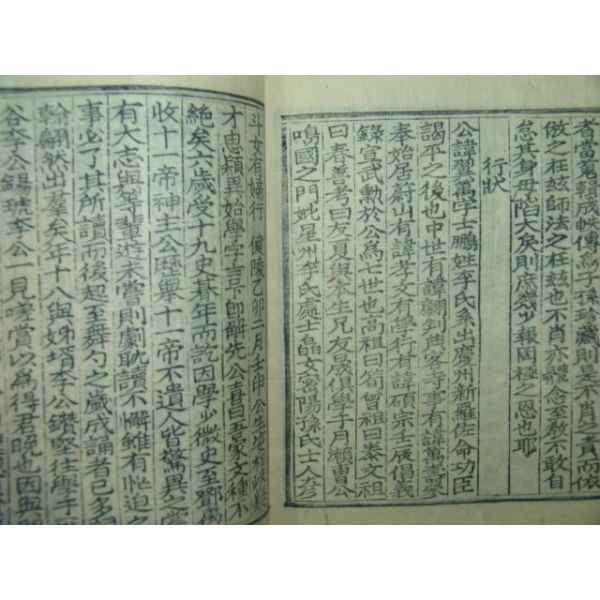 者當蒐輯成帙傳爲子孫珍藏則是不肖之責而依
倣之在玆師法之在玆也不肖亦體念至敎不敢自
怠其身毋陷大戾則庶幾少報罔極之恩也耶
行狀
公諱翼萬字士鵬姓李氏系出慶州新羅佐命功臣
謁平之後也中世有諱翮判典客寺事有諱
奉始居蔚山有諱孝文有學行有諱碩宗壬辰倡義
錄宣武勳於公爲七世也高祖曰筍曾祖曰泰文祖
曰春善考曰友夏與本生兄友晟俱學于月瀨曹公
鳴國之門妣星州李氏處士女密陽孫氏士人彦
斗女有婦行 健陵乙卯二月壬申公生
才思穎異始學字言卽解先公喜曰吾家文種不
絶矣六歲受十九史朞年而訖因學少微史至鄧禹
收十一帝神主公歷擧十一帝不遺人皆驚異之
有大志與等輩遊未嘗則劇耽讀不懈雖有忙迫之
事必了其所讀而後起至舞勺之歲成誦者已多
翰翩然出羣矣年十八與姊壻李公鑽堅往學于
谷李公錫 李公一見嘆賞以爲得君晩也因與